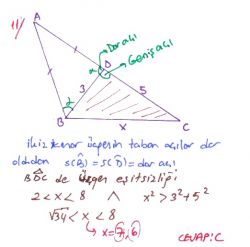 11/
A
Dar açı
D
Geniş açı
α
1
1
5
3
α
B
x
C
ikizkenar üçgenin taban açıları dar
olduğundan s(B̂) = s(D̂) = dar açı
BDC de üçgen eşitsizliği
2 < x < 8 ∧ x² > 3² + 5²
√34 < x < 8
x = 7, 6
CEVAP: C